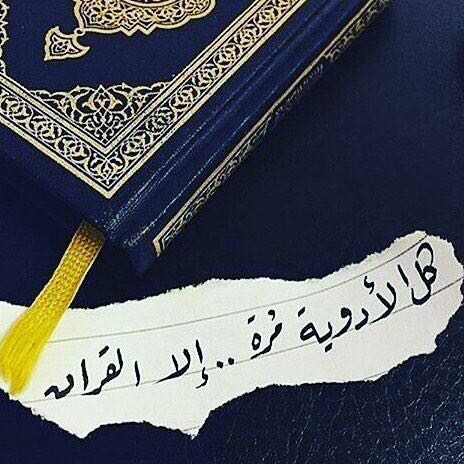 كل الأدوية مُرة .. إلا القران